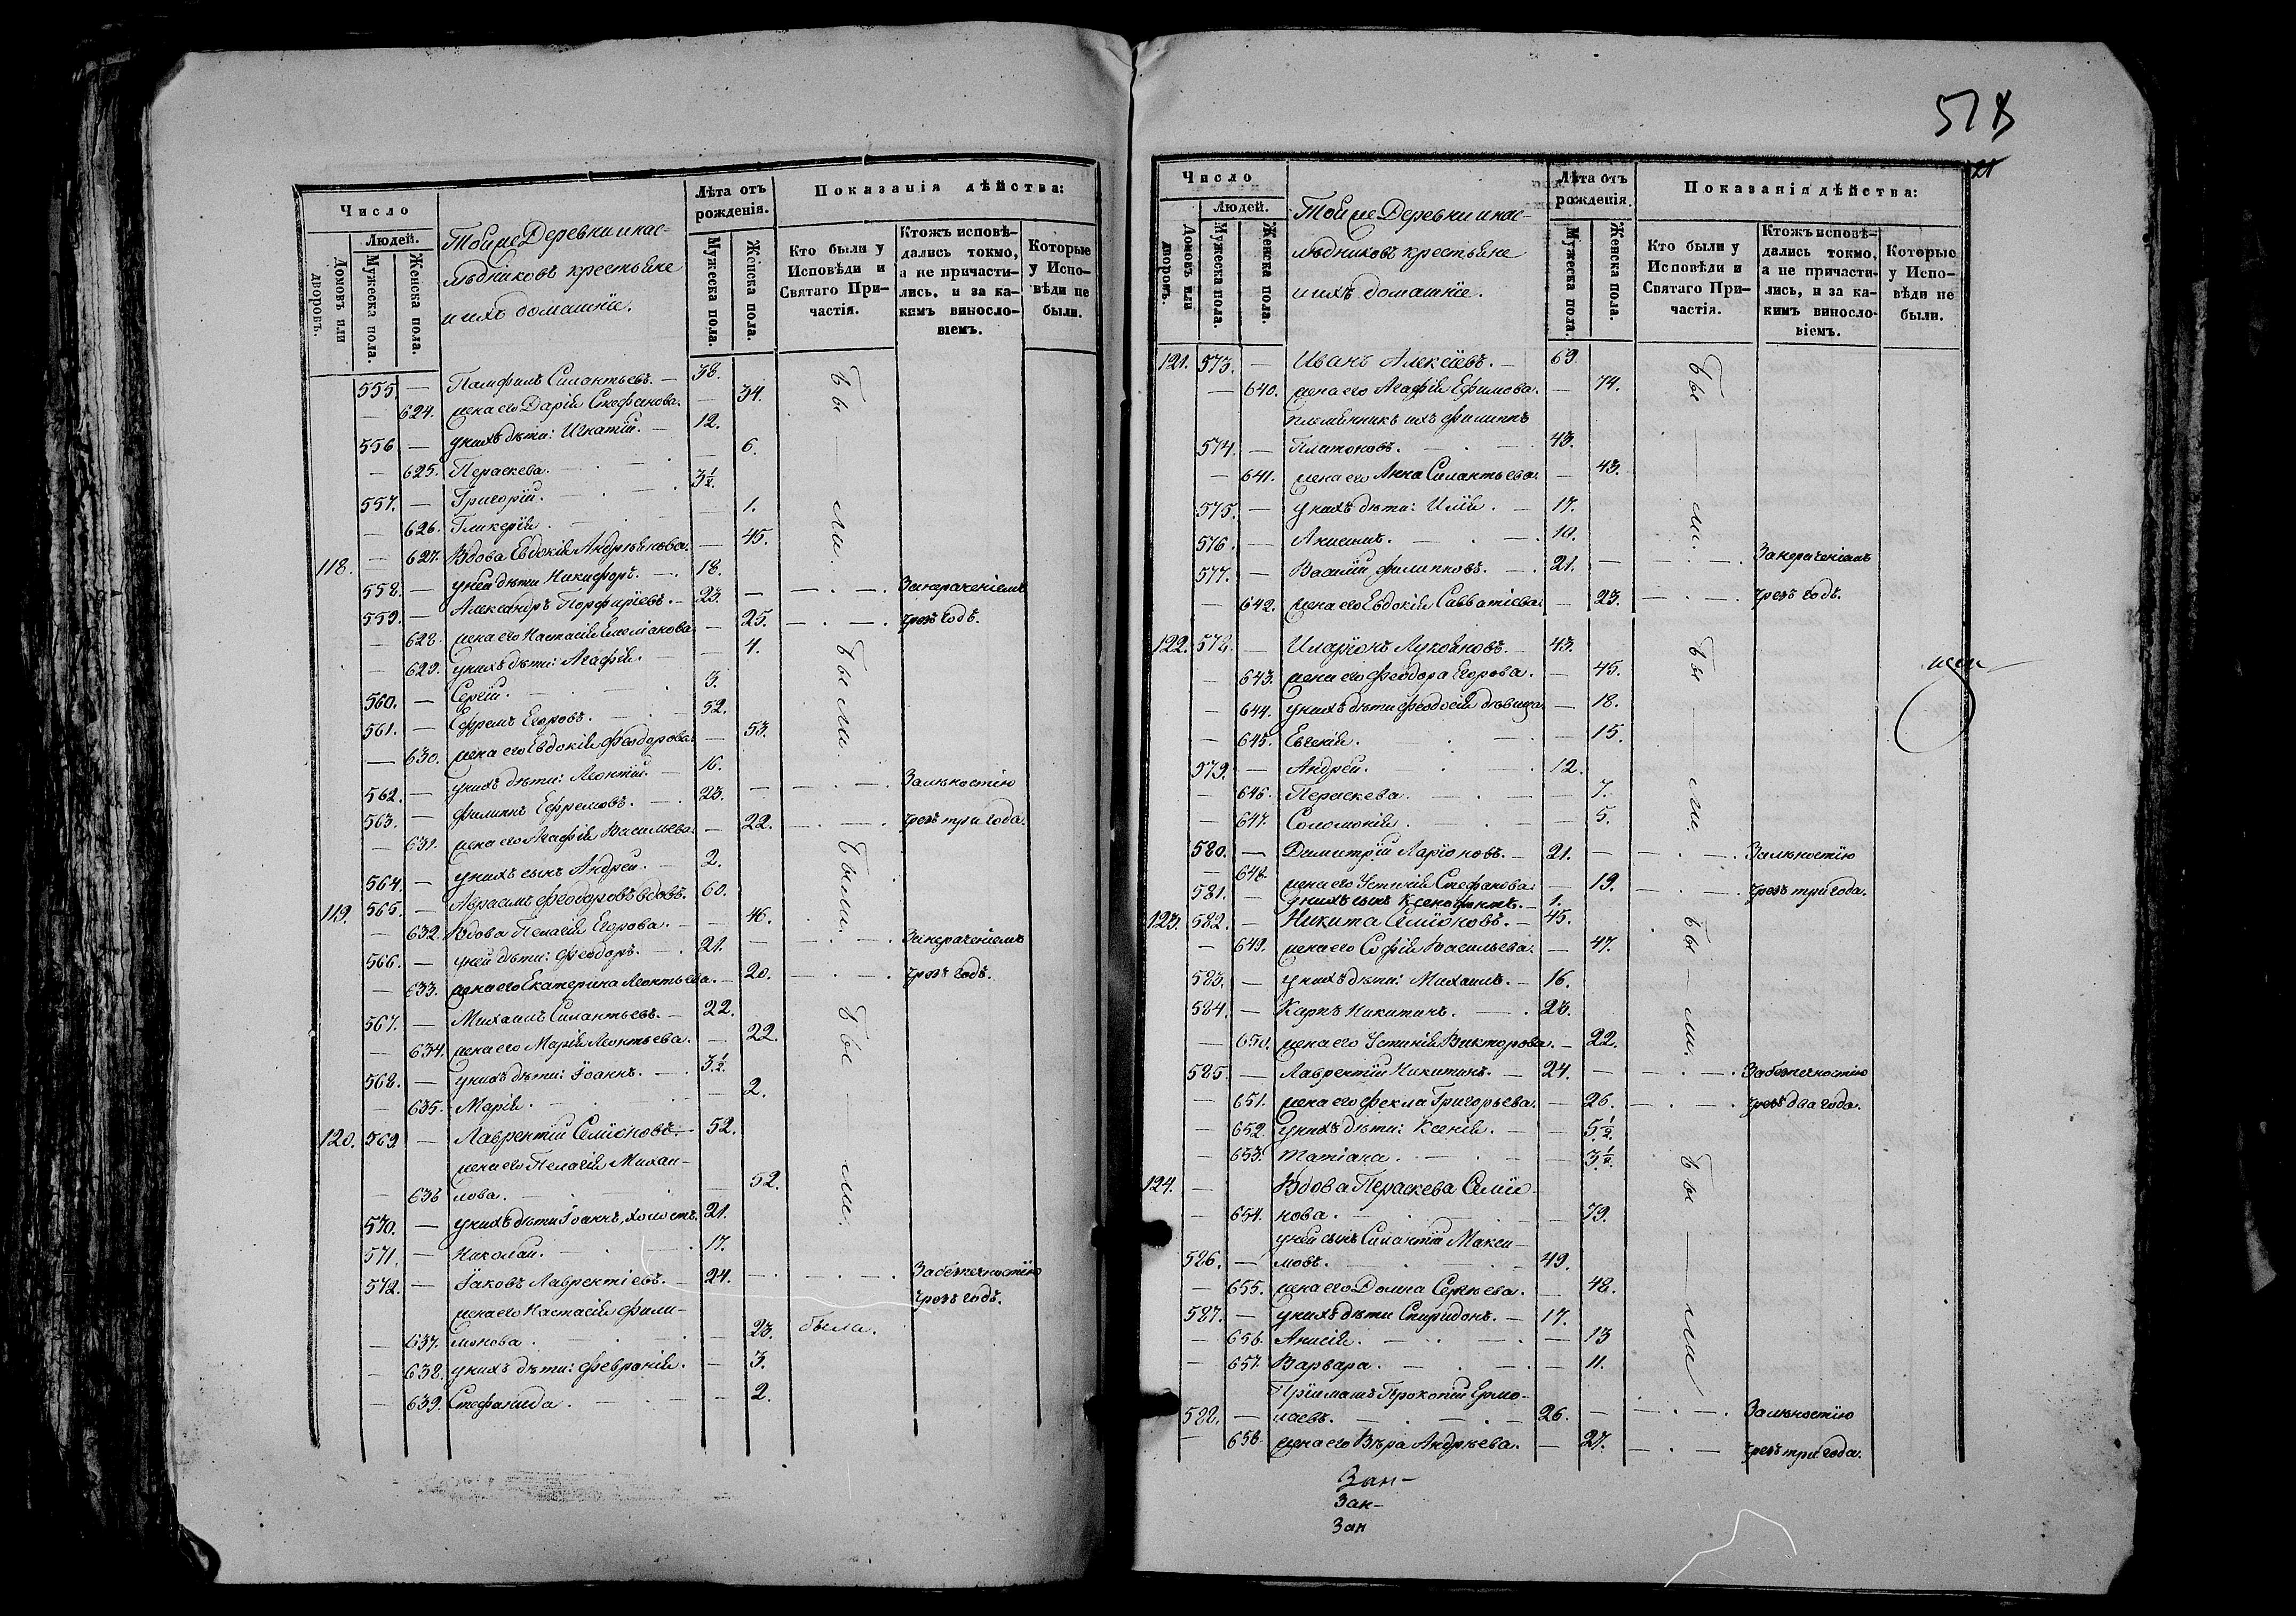 Число
Людей.
Домовъ или дворовъ.
Мужеска пола.
Женска пола.
Тойже Деревни и нас-
лѣдниковъ крестьяне
и ихъ домашніе.
Лѣта отъ рожденія.
Мужеска пола.
Женска пола.
Показанія дѣйства:
Кто были у Исповѣди и Святаго При-частія.
Ктожъ исповѣ-дались токмо, а не причасти-лись, и за ка-кимъ винос­ло-віемъ.
Которые у Испо-вѣди не были.
555. — Памфилъ Силантьевъ. — 38.
— 624. жена его Дарія Стефанова. — 34.
556 — у нихъ дѣти: Игнатій. — 12.
— 625. Параскева. — 6.
557. — Григорій. — 3½.
— 626. Гликерія. — 1.
118. — 627. Вдова Евдокія Андреянова. — 45.
558. — у ней дѣти Никифоръ. — 18.
559. — Александръ Порфиріевъ. — 23. — Занераченіемъ
— 628. жена его Настасія Емеліанова — 25. — чрезъ годъ.
— 629. у нихъ дѣти: Агафія. — 4.
560. — Сергій. — 3.
561. — Ефремъ Егоровъ. — 52.
— 630. жена его Евдокія Феодорова. — 53.
562. — у нихъ дѣти: Леонтій. — 16.
563. — Филиппъ Ефремовъ. — 23. — Залѣностію
— 631. жена его Агафія Васильева. — 22. — чрезъ три года.
564. — у нихъ сынъ Андрей. — 2.
119. 565. — Аврамъ Феодоровъ вдовъ. 60.
— 632. Вдова Пелагія Егорова. — 46.
566. — у ней дѣти: Феодоръ. — 21. — Занераченіемъ
— 633. жена его Екатерина Леонтьева. — 20. — чрезъ годъ.
567. — Михаилъ Силантьевъ. — 22.
— 634. жена его Марія Леонтьева. — 22.
568. — у нихъ дѣти: Іоаннъ. — 3½.
— 635. Марія. — 2.
120. 569 — Лаврентій Семіоновъ. — 52.
жена его Пелагія Михаи-
— 636 лова. — 52.
570. — у нихъ дѣти Іоаннъ, холостъ. 21.
571. — Николай. — 17.
572. — Іаковъ Лаврентіевъ. — 24. — Забезпечностію
чрезъ годъ.
жена его Настасія Фили-
— 637. монова. — 23. была.
— 638. у нихъ дѣти: Февронія. — 3.
— 639. Стефанида. — 2.
Бы — ли.
Были.
Были.
Бы — ли.
578
121
Число
Людей.
Домовъ или дворовъ.
Мужеска пола.
Женска пола.
Тойже Деревни и нас-
лѣдниковъ крестьяне
и ихъ домашніе.
Лѣта отъ рожденія.
Мужеска пола.
Женска пола.
Показанія дѣйства:
Кто были у Исповѣди и Святаго При-частія.
Ктожъ исповѣ-дались токмо, а не причасти-лись, и за ка-кимъ винос­ло-віемъ.
Которые у Испо-вѣди не были.
121. 573. — Иванъ Алексіевъ. — 69.
— 640. жена его Агафія Ефимова. — 74.
племянникъ ихъ Филиппъ
574. — Платоновъ. — 43.
— 641. жена его Анна Силантьева. — 43.
575. — у нихъ дѣти: Илія. — 17.
576. — Анисимъ. — 10.
577. — Василій Филипповъ. — 21. — Занераченіемъ
— 642. жена его Евдокія Савватіева. — 23. — чрезъ годъ.
122. 578. — Иларіонъ Лукояновъ. — 43.
— 643. жена его Феодора Егорова. — 45.
— 644. у нихъ дѣти Феодосія дѣвица — 18.
— 645. Евгенія. — 15.
579. — Андрей. — 12.
— 646. Параскева. — 7.
— 647. Соломонія. — 5.
580. — Димитрій Ларіоновъ. — 21. — Залѣностію
— 648. жена его Устинія Стефанова. — 19. — чрезъ три года.
581. — у нихъ сынъ Ксенофонтъ. — 1.
123. 582. — Никита Семіоновъ. — 45.
— 649. жена его Софія Васильева. — 47.
583. — у нихъ дѣти: Михаилъ. — 16.
584. — Карпъ Никитинъ. — 23.
— 650. жена его Устинія Викторова. — 22.
585. — Лаврентій Никитинъ. — 24. — Забезпечностію
— 651. жена его Фекла Григорьева. — 26. — чрезъ два года.
— 652. у нихъ дѣти: Ксенія. — 5½.
— 653. Татіана. — 3½.
124. — Вдова Параскева Семіо-
— 654. нова. — 79.
у ней сынъ Силантій Макси-
586. — мовъ. — 49.
— 655. жена его Домна Сергѣева. — 48.
587. — у нихъ дѣти Спиридонъ. — 17.
— 656. Анисія. — 13
— 657. Варвара. — 11.
Пріимашъ Прокопій Ермо-
588. — лаевъ. — 26. — Залѣностію
— 658. жена его Вѣра Андрѣева. — 27. — чрезъ три года.
Бы — ли.
Бы — ли.
Бы — ли.
Бы — ли
Зан-
Зак-
Зан